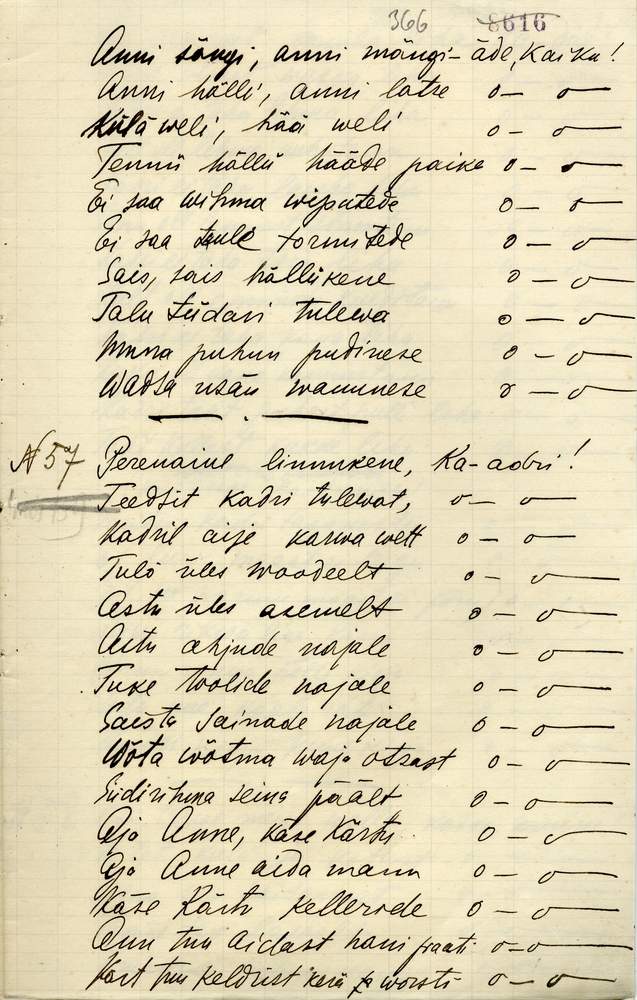 366 8616
Anni sõngi, anni mängi - äde, kaiku!
Anni hälli, anni latse o — o —
Külä weli, hää weli o — o —
Tennü hällü hääde paike o — o —
Ei saa wihma wiputede o — o —
Ei saa tuule tormitede o — o —
Sais, sais hällükene o — o —
Talu tüdari tulewa o — o —
Muna puhun pudinese o — o —
Wadsa üsän wamunese o — o —
N 57 Perenaine linnukene, Ka-adri!
Teedsit kadri tulewat, o — o —
Kadril aije karwa wett o — o —
Tulõ üles woodeelt o — o —
Astu üles asemelt o — o —
Astu ahjude najale o — o —
Tuke toolide najale o — o —
Saista sainade najale o — o —
Wõta wõtma waja otsast o — o —
Siidirihma seina päält o — o —
Aja Anne, käse Kärtu o — o —
Aja Anne aida manu o — o —
Käse Kärtu kelleride o — o —
Ann tuu aidast hani praati o — o —
Kärt tuu keldrist keeü ja worsti o — o —